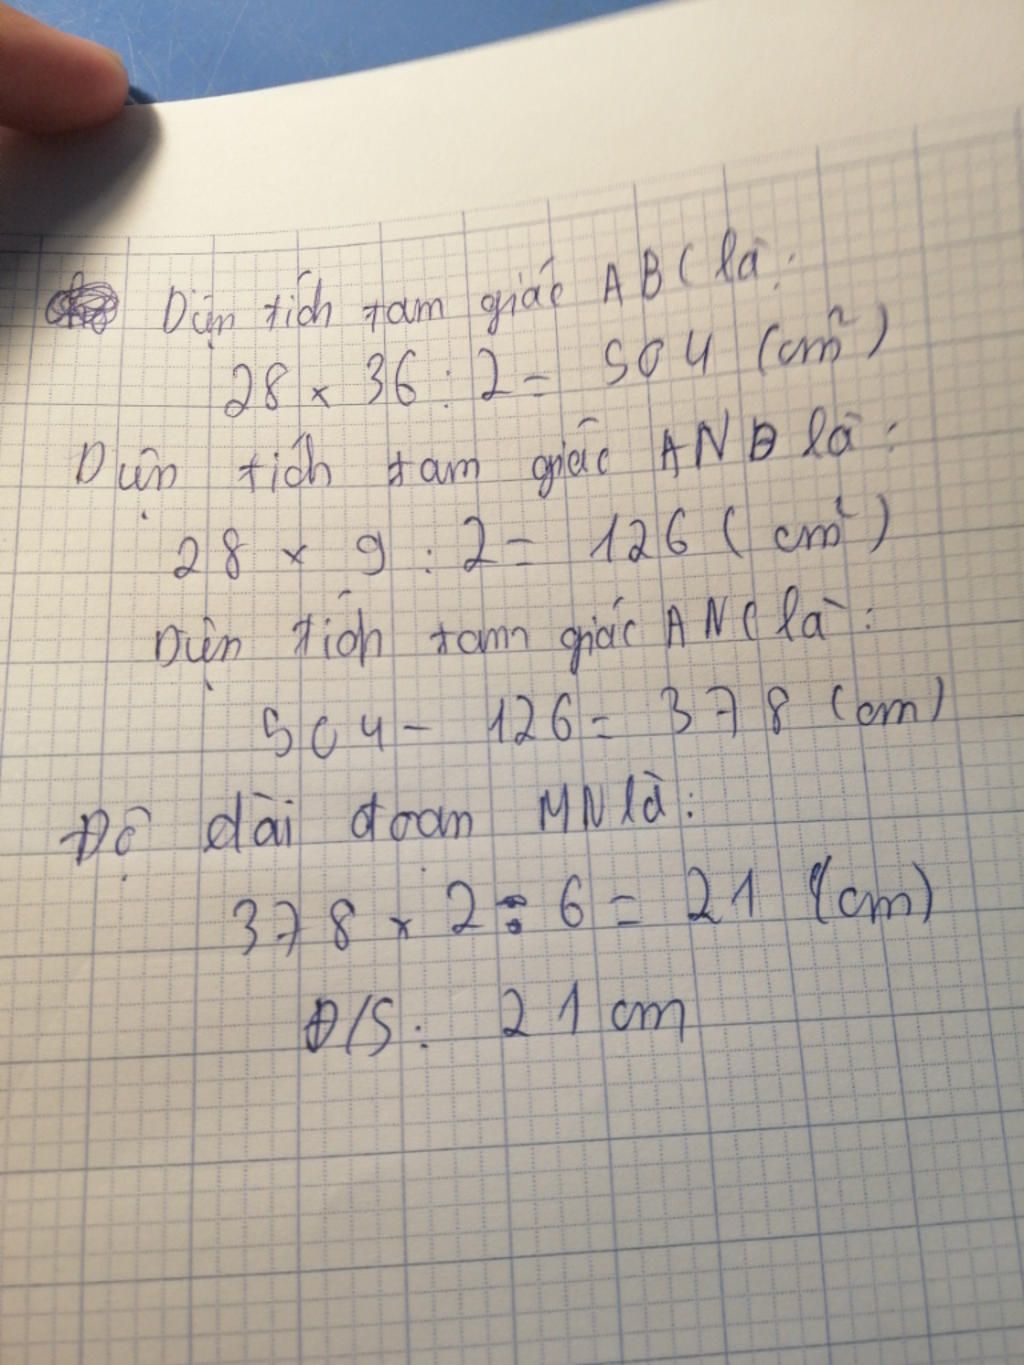 Diện tích tam giác ABC là:
28 x 36 : 2 = 504 (cm²)
Diện tích tam giác ANB là:
28 x 9 : 2 = 126 (cm²)
Diện tích tam giác ANC là:
504 - 126 = 378 (cm)
Độ dài đoạn MN là:
378 x 2 : 6 = 21 (cm)
Đ/S: 21 cm